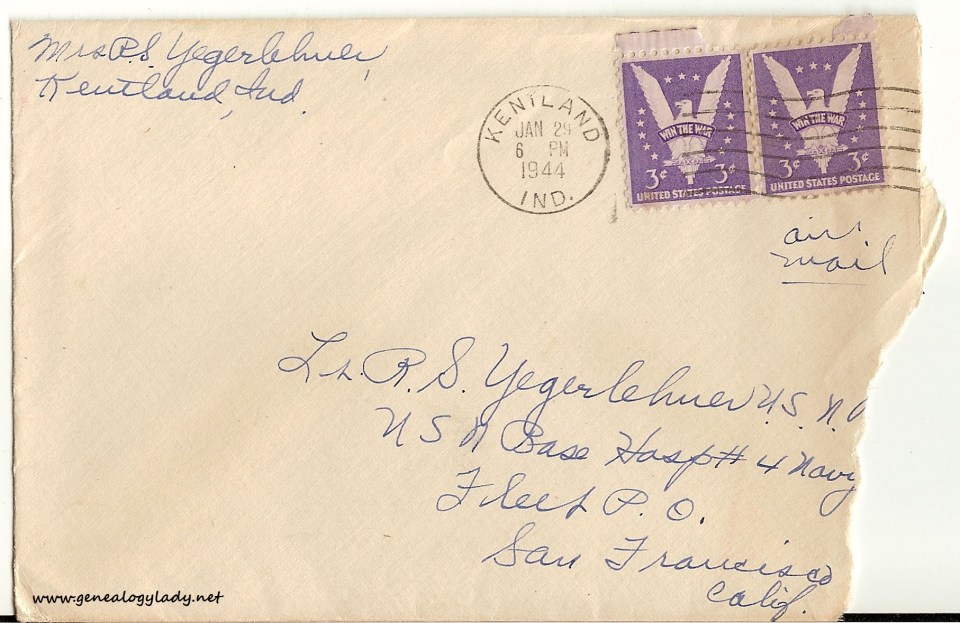 Mrs R.S. Yegerlehner,
Kentland, Ind
KENTLAND
JAN 29
6 PM
1944
IND.
WIN THE WAR
3¢ 3¢
UNITED STATES POSTAGE
WIN THE WAR
3¢ 3¢
UNITED STATES POSTAGE
air
mail
Lt. R. S. Yegerlehner U.S. N.
U S N Base Hosp # 4 Navy
Fleet P. O.
San Francisco
Calif.
www.genealogylady.net